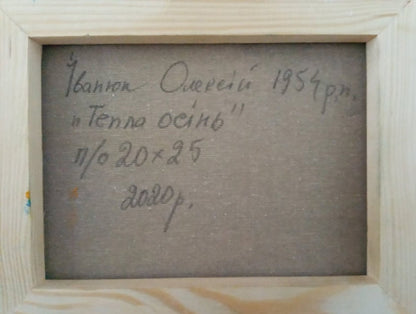 Іванюк Олексій 1954 р.н.
"Тепла осінь"
п/о 20×25
2020р.